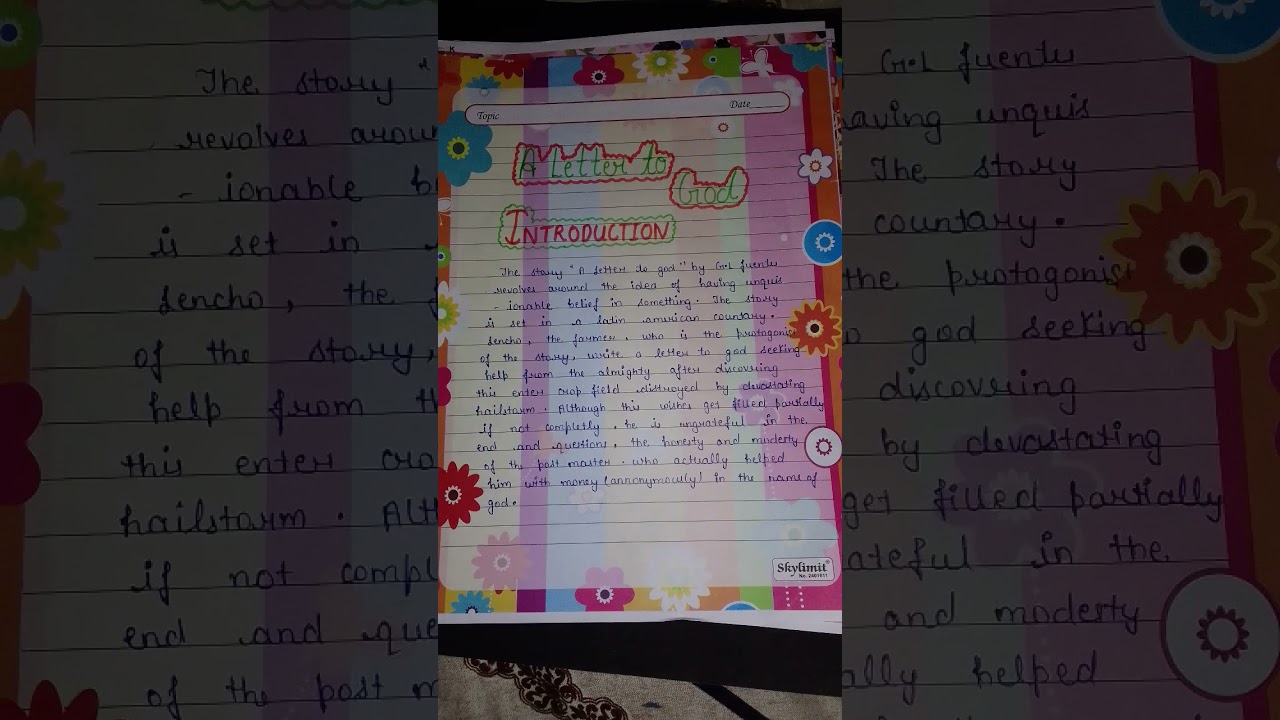 Topic
Date
A Letter to
God
INTRODUCTION
The story "A letter do god" by G.L fuentu
revolves around the idea of having unquis
- ionable belief in something. The story
is set in a latin american countary.
sencho, the farmer, who is the protagonist
of the story, write a letter to god seeking
help from the almighty after discovering
this enter crop field distroyed by devastating
hailstorm. Although this wishes get filled partially
if not completly, he is ungrateful in the
end and questions, the honesty and moderty
of the post master. who actually helped
him with money (annonymously) in the name of
god.
Skylimit
No. 2401611